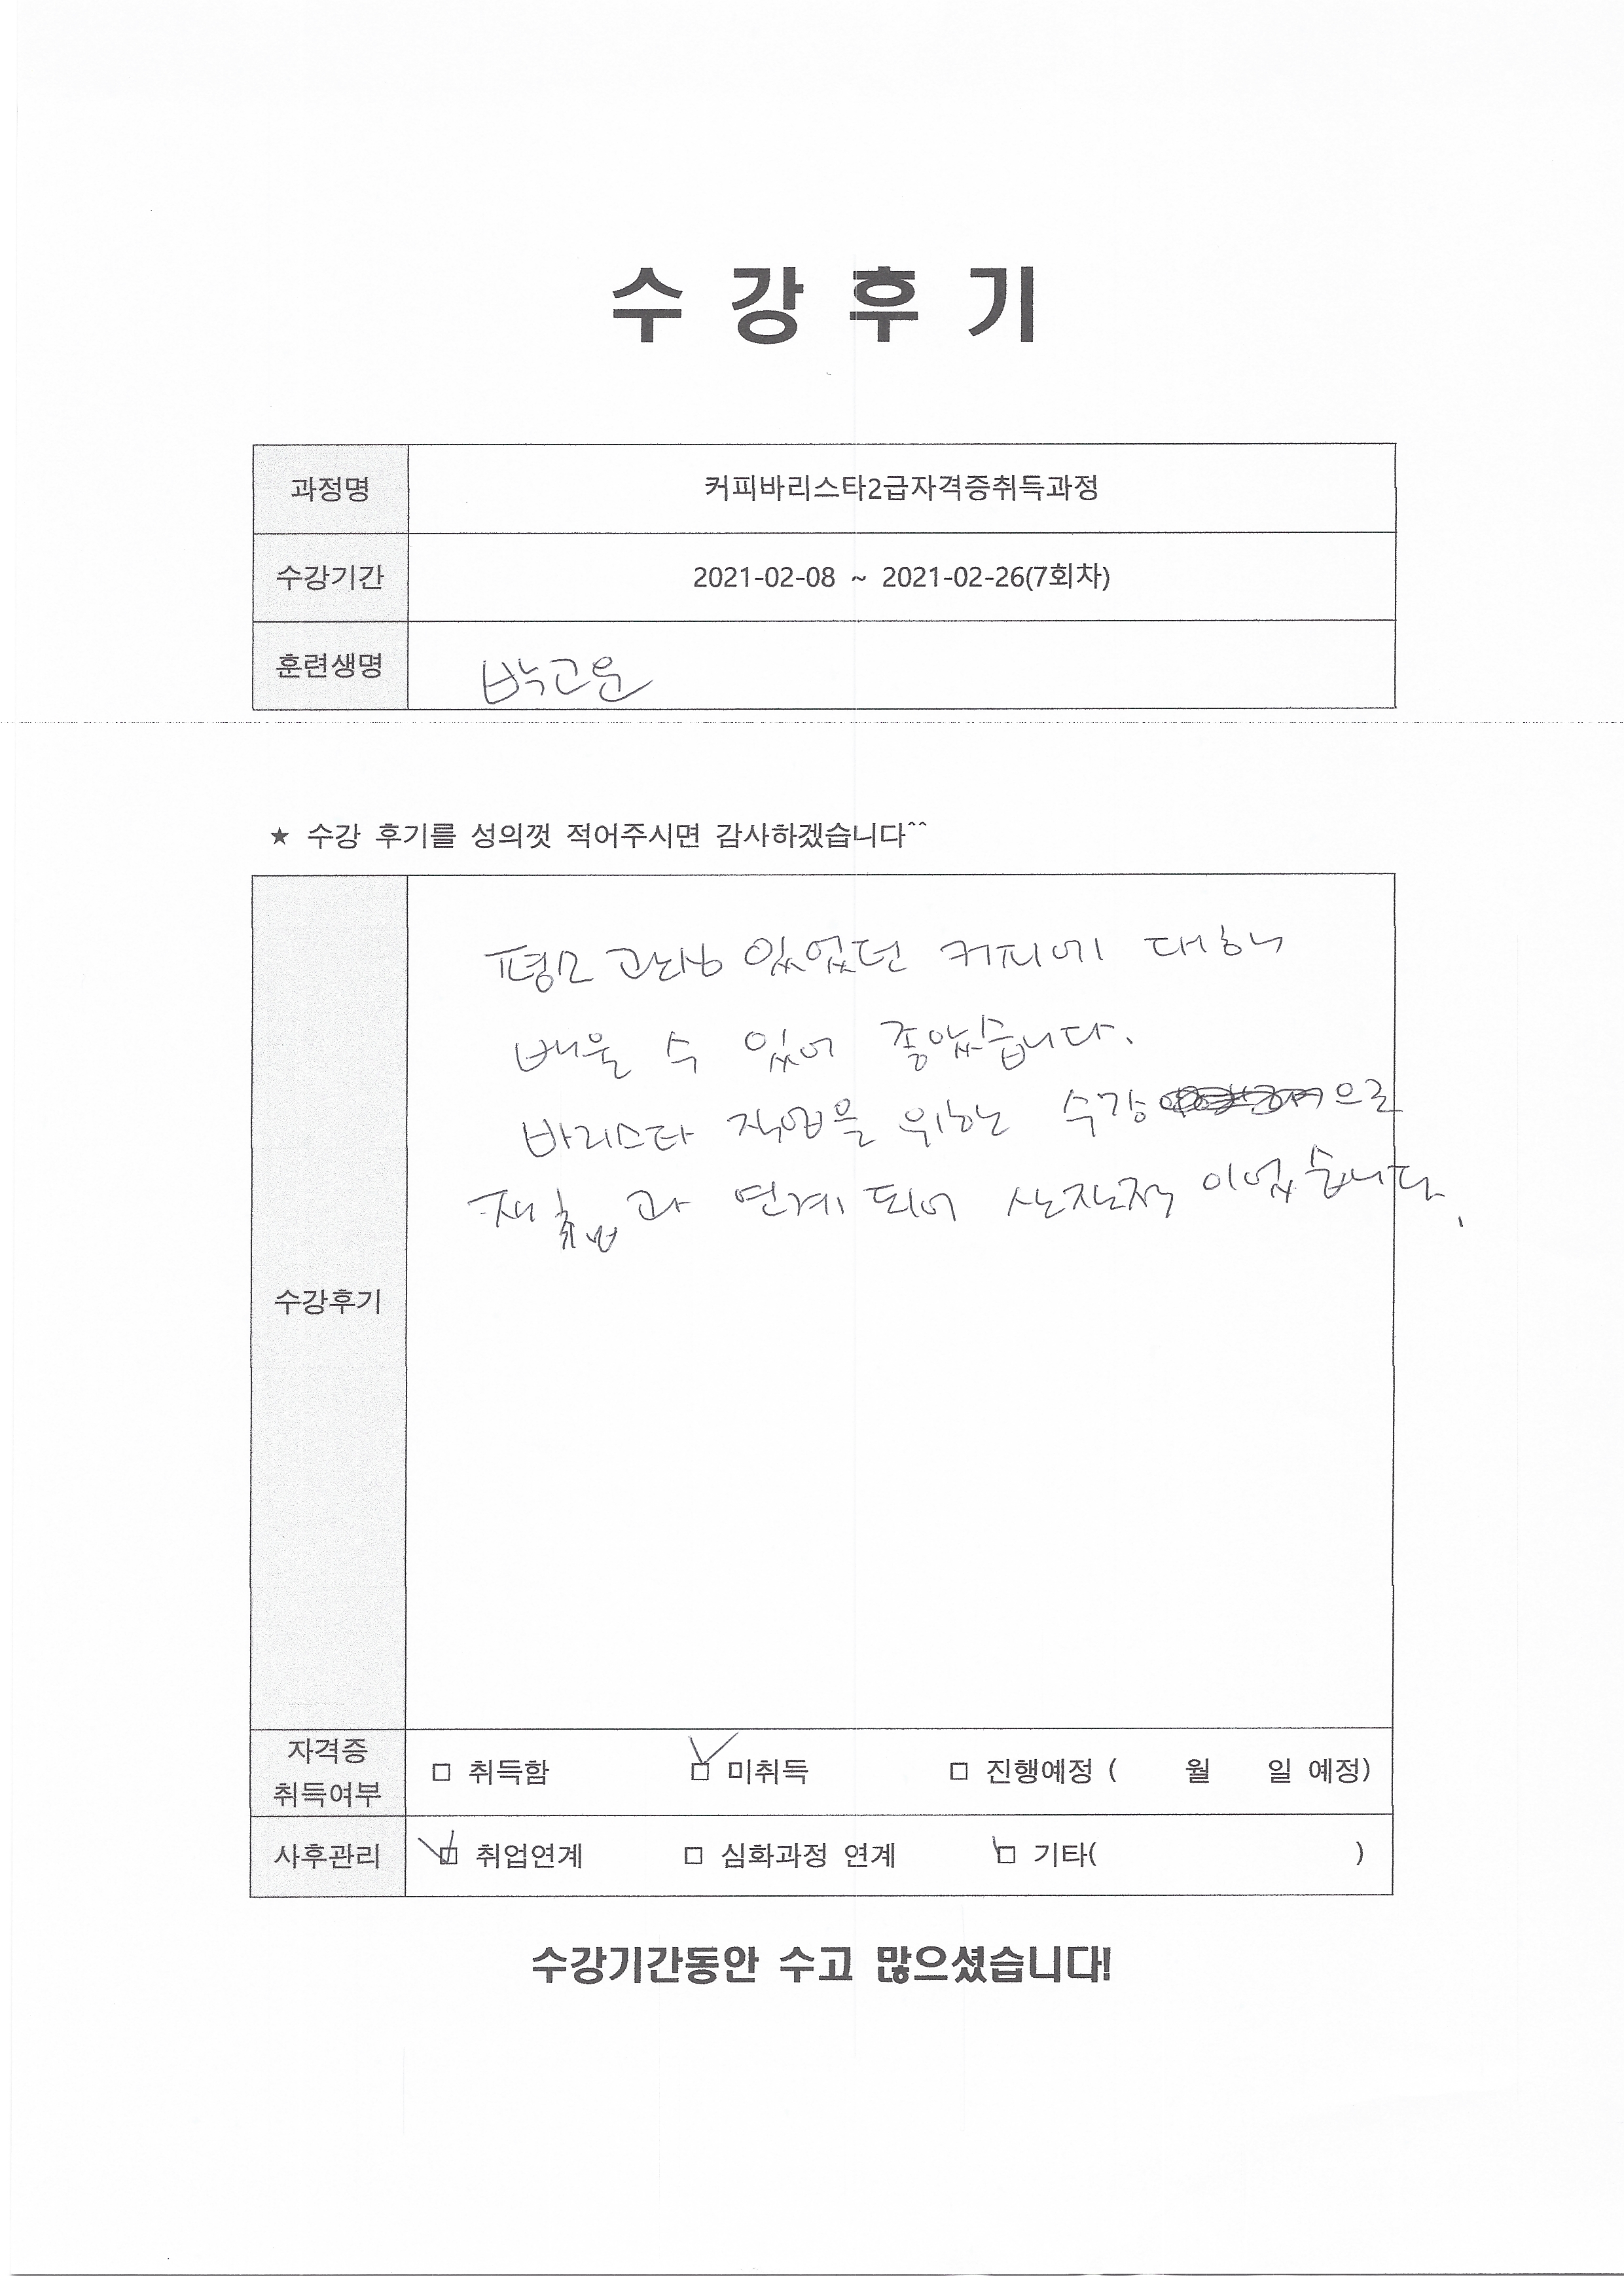 수 강 후 기
과정명 커피바리스타2급자격증취득과정
수강기간 2021-02-08 ~ 2021-02-26(7회차)
훈련생명 박고운
★ 수강 후기를 성의껏 적어주시면 감사하겠습니다^^
수강후기
평소 관심 있었던 커피에 대해
배울 수 있어 좋았습니다.
바리스타 직업을 위한 수강 으로
재취업과 연계되어
자격증 취득여부 □ 취득함 □ 미취득 □ 진행예정 ( 월 일 예정)
사후관리 □ 취업연계 □ 심화과정 연계 □ 기타( )
수강기간동안 수고 많으셨습니다!